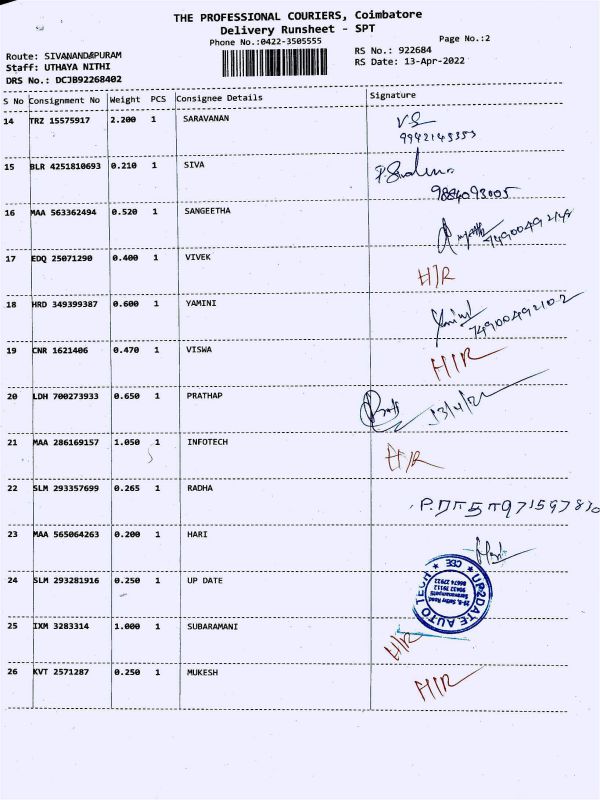 THE PROFESSIONAL COURIERS, Coimbatore
Delivery Runsheet - SPT
Phone No.:0422-3505555
Page No.:2
Route: SIVANANDAPURAM
RS No.: 922684
Staff: UTHAYA NITHI
RS Date: 13-Apr-2022
DRS No.: DCJB92268402
S No Consignment No Weight PCS Consignee Details Signature
14 TRZ 15575917 2.200 1 SARAVANAN
15 BLR 4251810693 0.210 1 SIVA
9884093005
16 MAA 563362494 0.520 1 SANGEETHA
17 EDQ 25071290 0.400 1 VIVEK H/R
18 HRD 349399387 0.600 1 YAMINI
74900492102
19 CNR 1621406 0.470 1 VISWA H/R
20 LDH 700273933 0.650 1 PRATHAP 13/4/22
21 MAA 286169157 1.050 1 INFOTECH H/R
22 SLM 293357699 0.265 1 RADHA
23 MAA 565064263 0.200 1 HARI
24 SLM 293281916 0.250 1 UP DATE UP2DATE AUTO TECH CBE
25 IXM 3283314 1.000 1 SUBARAMANI H/R
26 KVT 2571287 0.250 1 MUKESH H/R